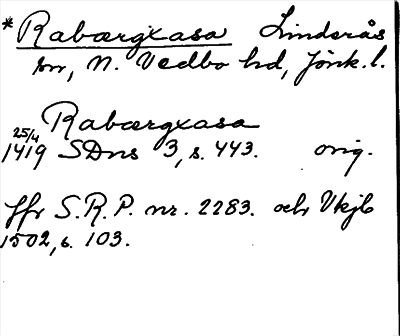 * Rabærgxasa Linderås
sn, N. Vedbo hd, Jönk. l.
Rabærgxasa
25/4
1419 SDns 3, s. 443. orig.
Jfr S.R.P. nr. 2283. och Vkjb
1502, s. 103.